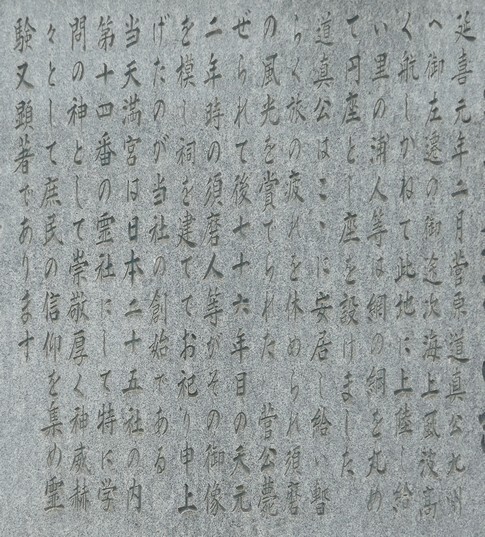 延喜元年二月菅原道真公九州
へ御左遷の御途次海上風波高
く航しかねて此地に上陸し給
い里の浦人等は網の綱を丸め
て円座とし座を設けました
道真公はここに安居し給い暫
らく旅の疲れを休められ須磨
の風光を賞でられた 菅公薨
ぜられて後七十六年目の天元
二年時の須磨人等がその御像
を模し祠を建ててお祀り申上
げたのが当社の創始である
当天満宮は日本二十五社の内
第十四番の霊社にして特に学
問の神として崇敬厚く神威赫
々として庶民の信仰を集め霊
験又顕著であります